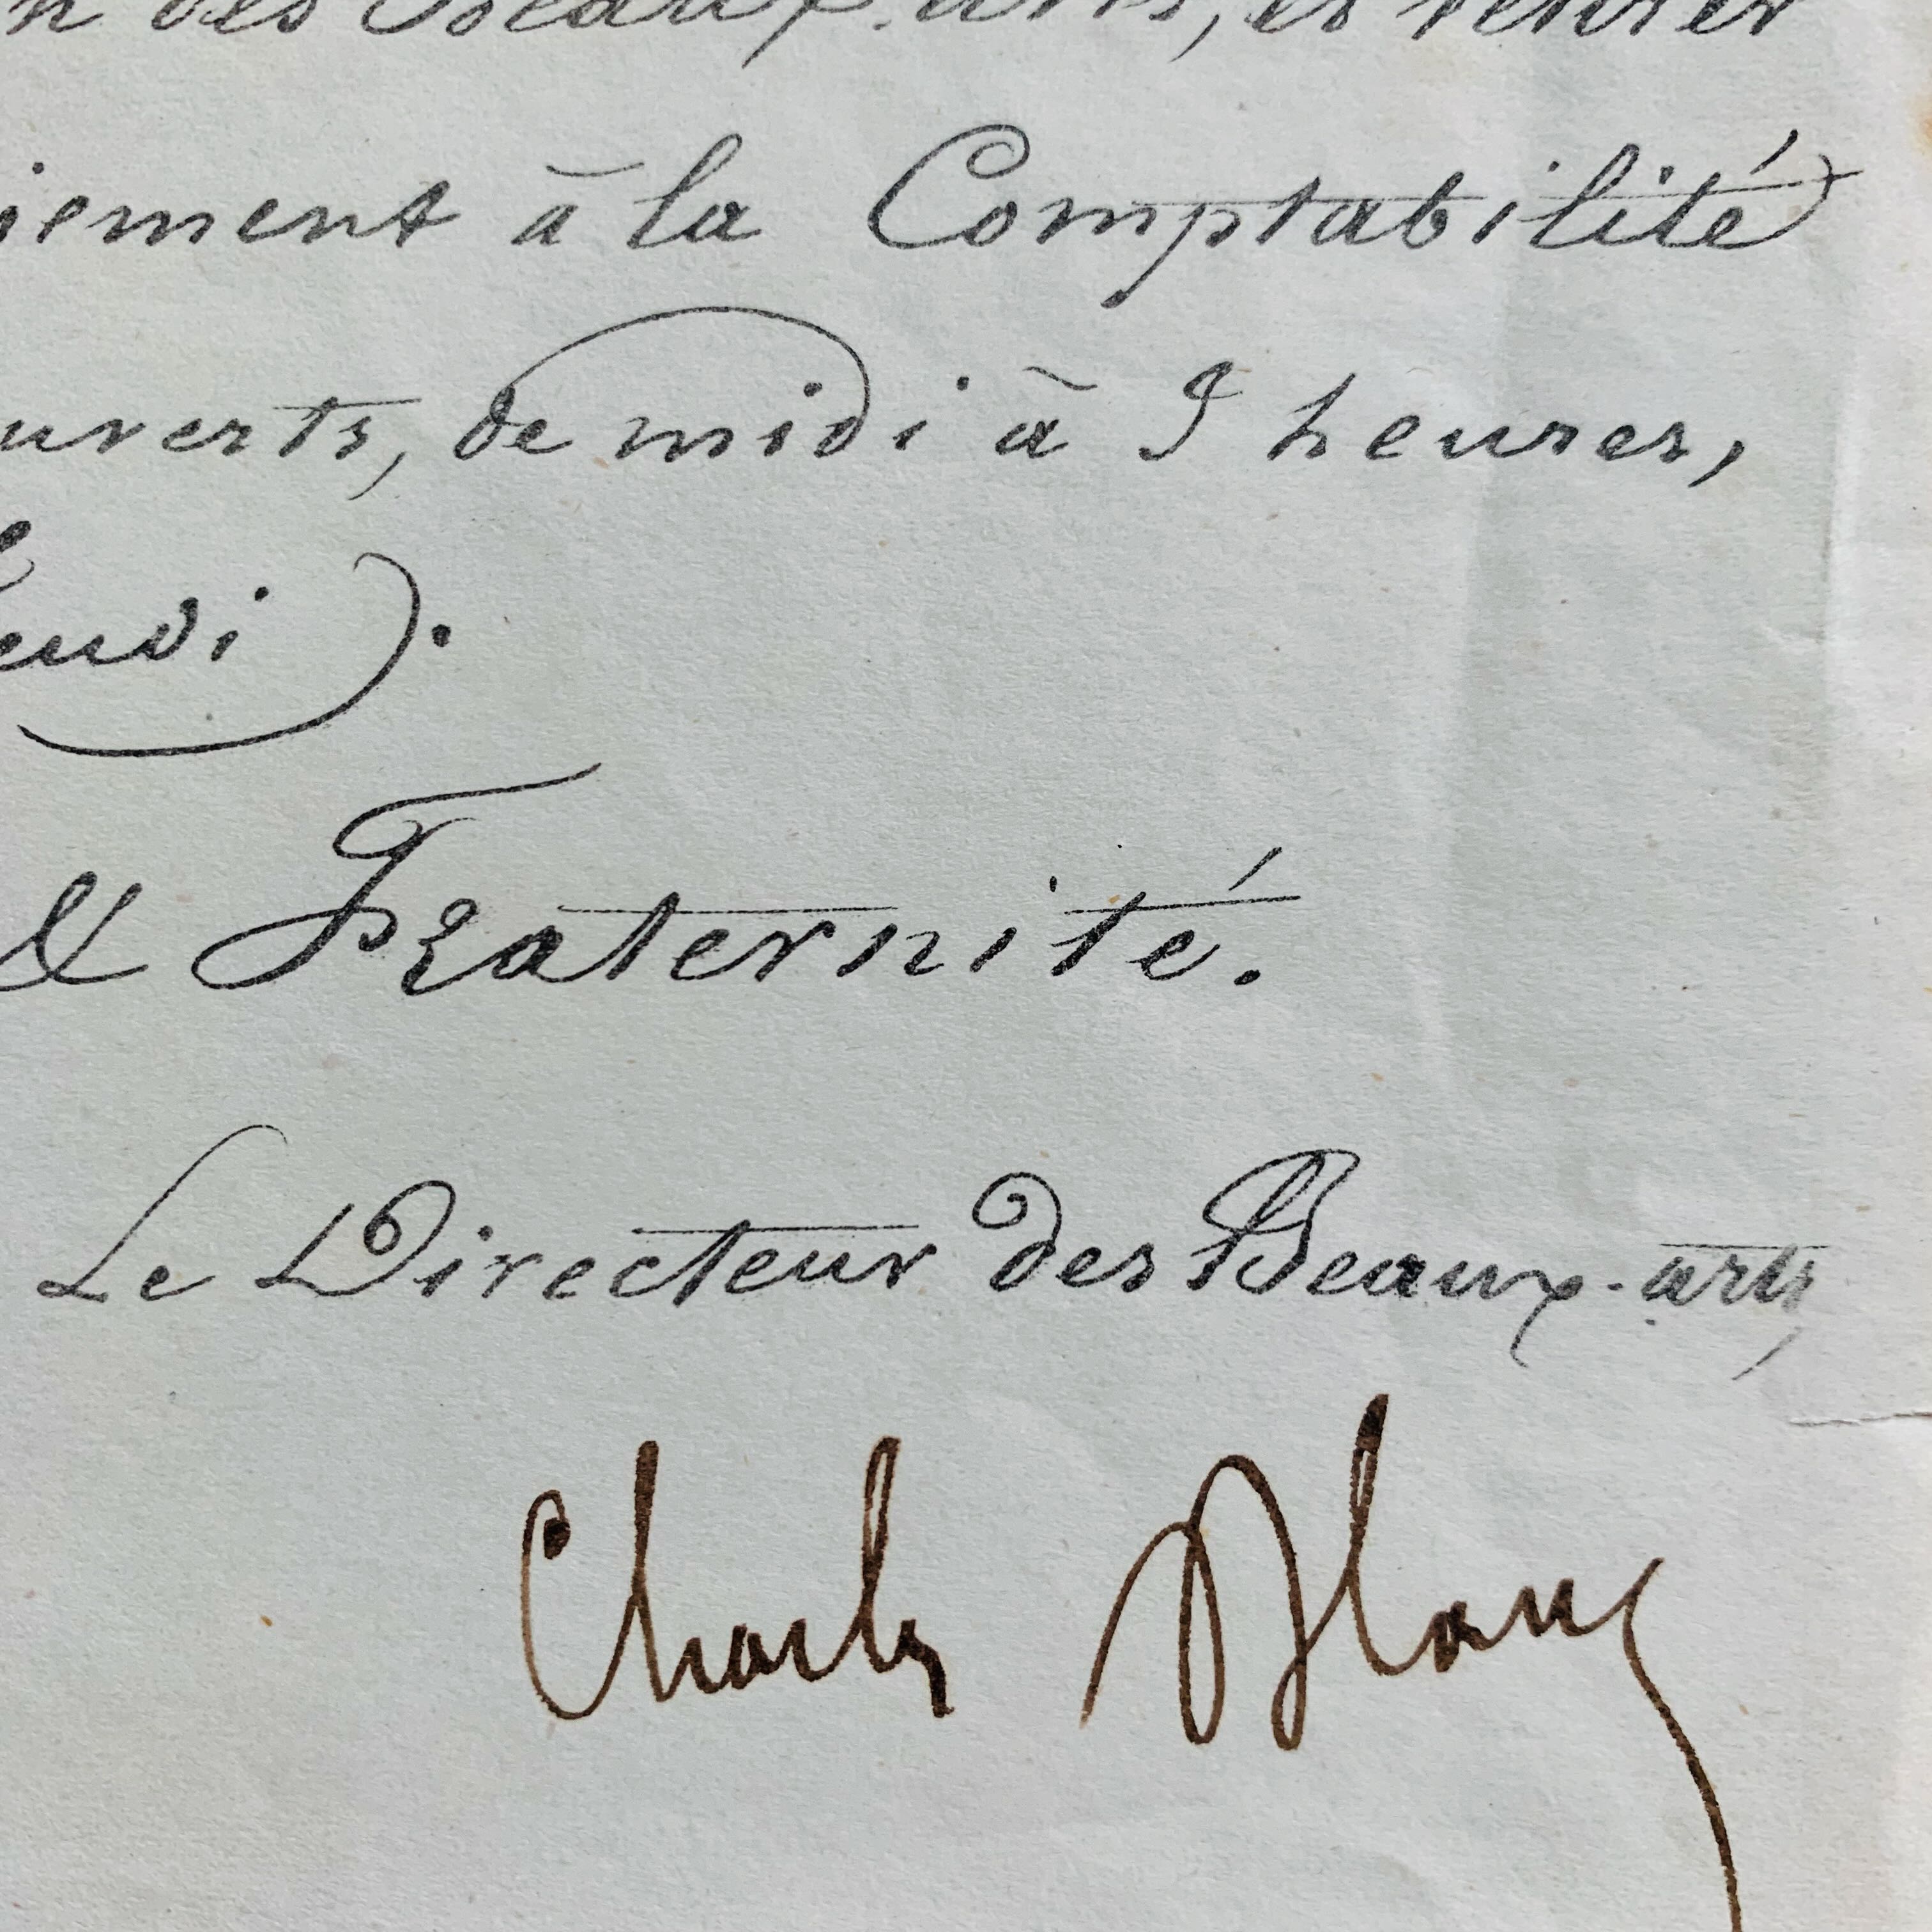 n des Beaux-arts, et retirer
iement à la Comptabilité
uverts, de midi à 3 heures,
eudi).
& Fraternité.
Le Directeur des Beaux-arts,
Charles Blanc